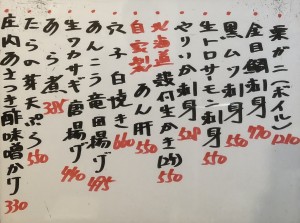 栗ガニ(ボイル) 1210
金目鯛刺身 770
黒ムツ刺身 550
生トロサーモン刺身 550
やりいか刺身 528
北海道 殻付生かき(2ヶ) 550
自家製 あん肝 550
穴子白焼き 660
あんこう竜田揚げ 495
生ワカサギ唐揚げ 440
あら煮 385
たらの芽天ぷら 550
庄内あさつき酢味噌かけ 330